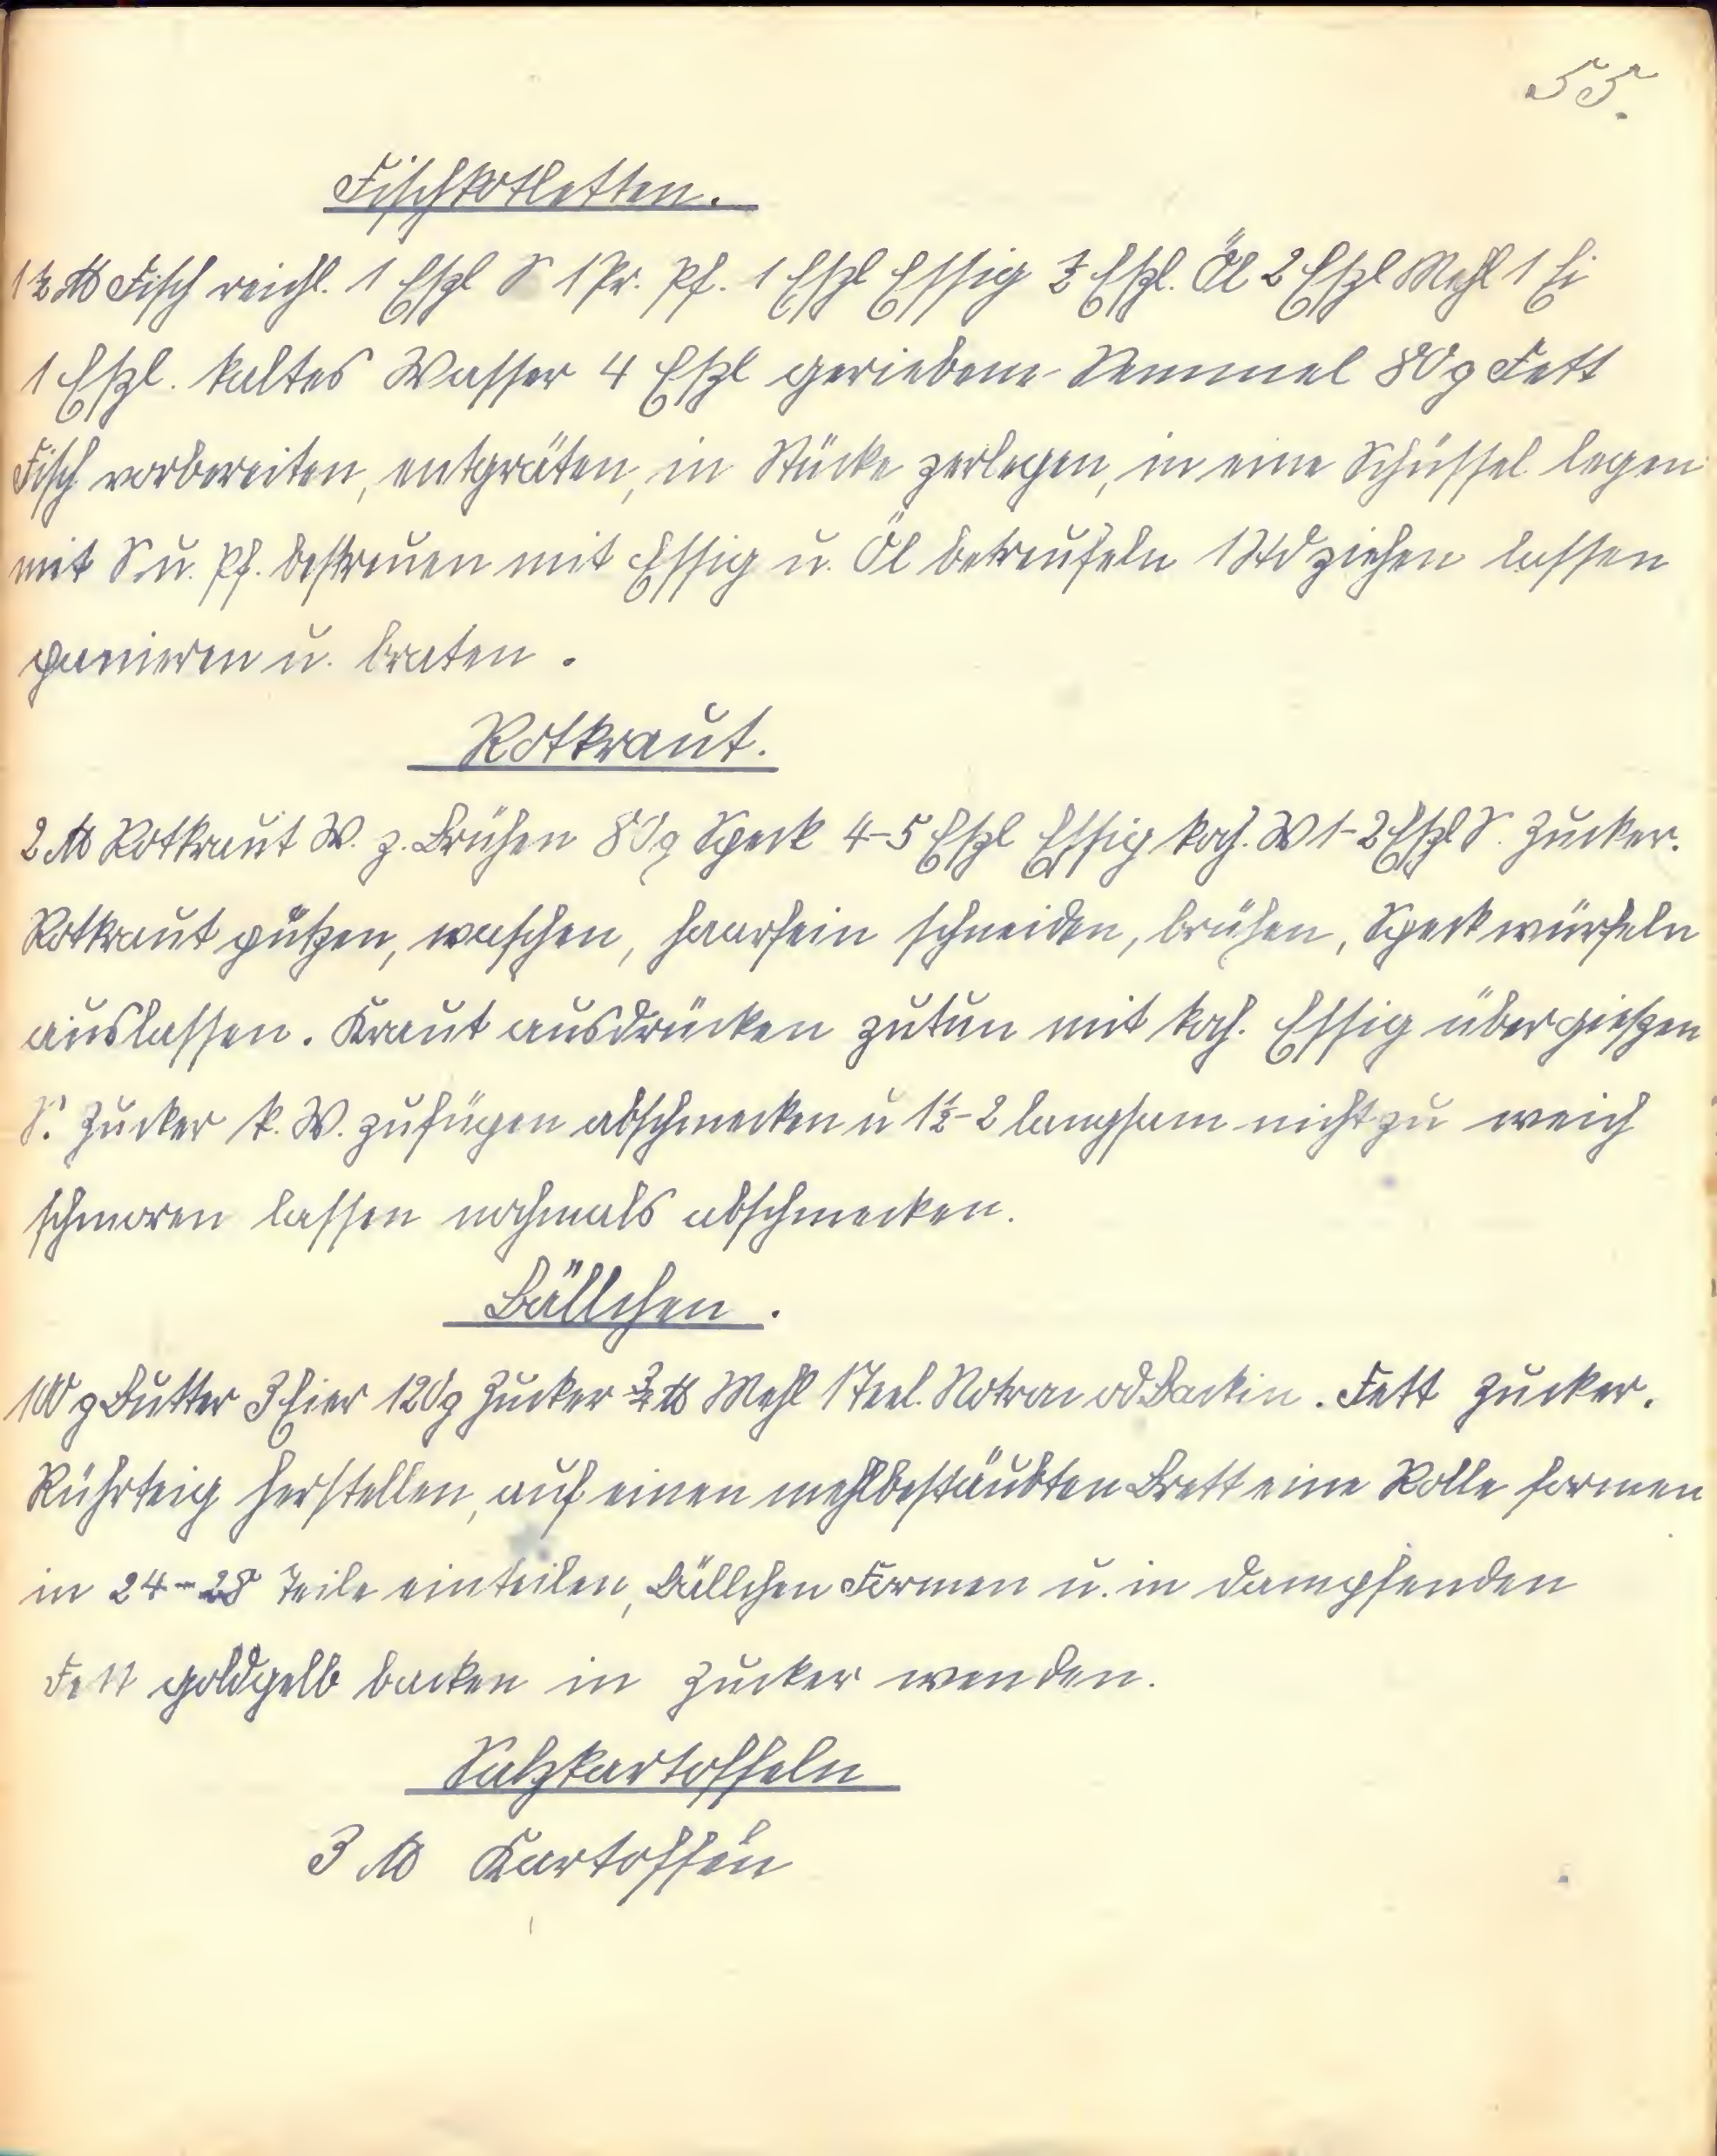 55.
Fischkotletten.
1½ ℔ Fisch reichl. 1 Eßl S 1 Pr. Pf. 1 Eßl Essig ½ Eßl. Öl 2 Eßl Mehl 1 Ei
1 Eßl. kaltes Wasser 4 Eßl geriebene Semmel 80 g Fett
Fisch vorbereiten, entgräten, in Stücke zerlegen, in eine Schüssel legen
mit S. u. Pf. bestreuen mit Essig u. Öl beträufeln 1 Std ziehen lassen
panieren u. braten.
Rotkraut.
2 ℔ Rotkraut W. z. Brühen 80 g Speck 4-5 Eßl Essig koch. W 1-2 Eßl S. Zucker.
Rotkraut putzen, waschen, haarfein schneiden, brühen, Speck würfeln
auslassen. Kraut ausdrücken zutun mit koch. Essig übergießen
S. Zucker k. W. zufügen abschmecken u 1½-2 langsam nicht zu weich
schmoren lassen nochmals abschmecken.
Bällchen.
100 g Butter 3 Eier 120 g Zucker ¾ ℔ Mehl 1 Teel. Notron od Backin. Fett Zucker.
Rührteig herstellen, auf einen mehlbestäubten Brett eine Rolle formen
in 24-28 Teile einteilen, Bällchen Formen u. in dampfenden
Fett goldgelb backen in Zucker wenden.
Salzkartoffeln
3 ℔ Kartoffeln